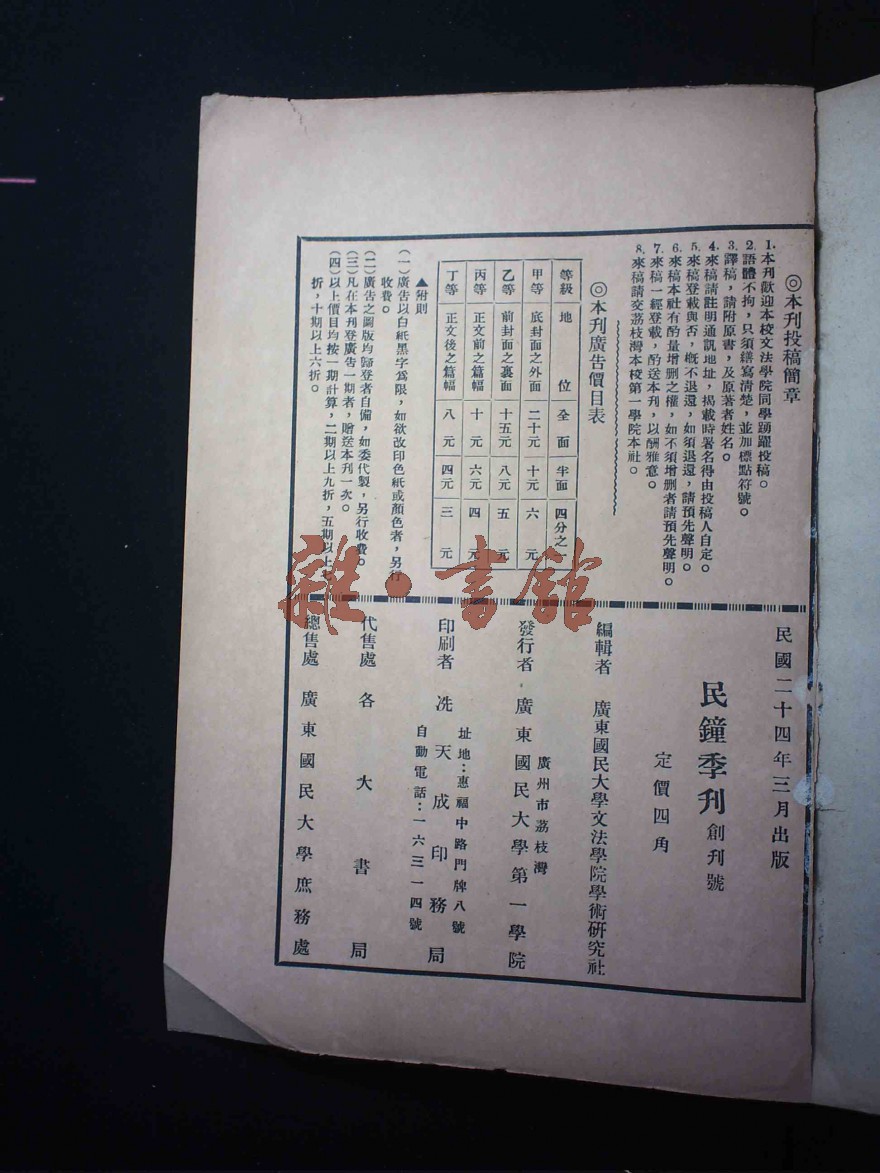 ◎本刊投稿簡章
1.本刊歡迎本校文法學院同學踴躍投稿。
2.語體不拘，只須繕寫清楚，並加標點符號。
3.譯稿，請附原書，及原著者姓名。
4.來稿請註明通訊地址，揭載時署名得由投稿人自定。
5.來稿登載與否，槪不退還，如須退還，請預先聲明。
6.來稿本社有酌量增删之權，如不須增删者請預先聲明。
7.來稿一經登載，酌送本刊，以酬雅意。
8.來稿請交荔枝灣本校第一學院本社。
◎本刊廣告價目表
等級 地位 全面 半面 四分之一
甲等 底封面之外面 二十元 十元 六元
乙等 前封面之裏面 十五元 八元 五元
丙等 正文前之篇幅 十元 六元 四元
丁等 正文後之篇幅 八元 四元 三元
▲附則
(一)廣告以白紙黑字爲限，如欲改印色紙或顏色者，另行
收費。
(二)廣告之圖版均歸登者自備，如委代製，另行收費。
(三)凡在本刊登廣告一期者，贈送本刊一次。
(四)以上價目均按一期計算，二期以上九折，五期以上七
折，十期以上六折。
民國二十四年三月出版
民鐘季刊 創刊號
定價四角
編輯者 廣東國民大學文法學院學術研究社
廣州市荔枝灣
發行者 廣東國民大學第一學院
址地：惠福中路門牌八號
印刷者 冼天成印務局
自動電話：一六三一四號
代售處 各大書局
總售處 廣東國民大學庶務處
雜·書館